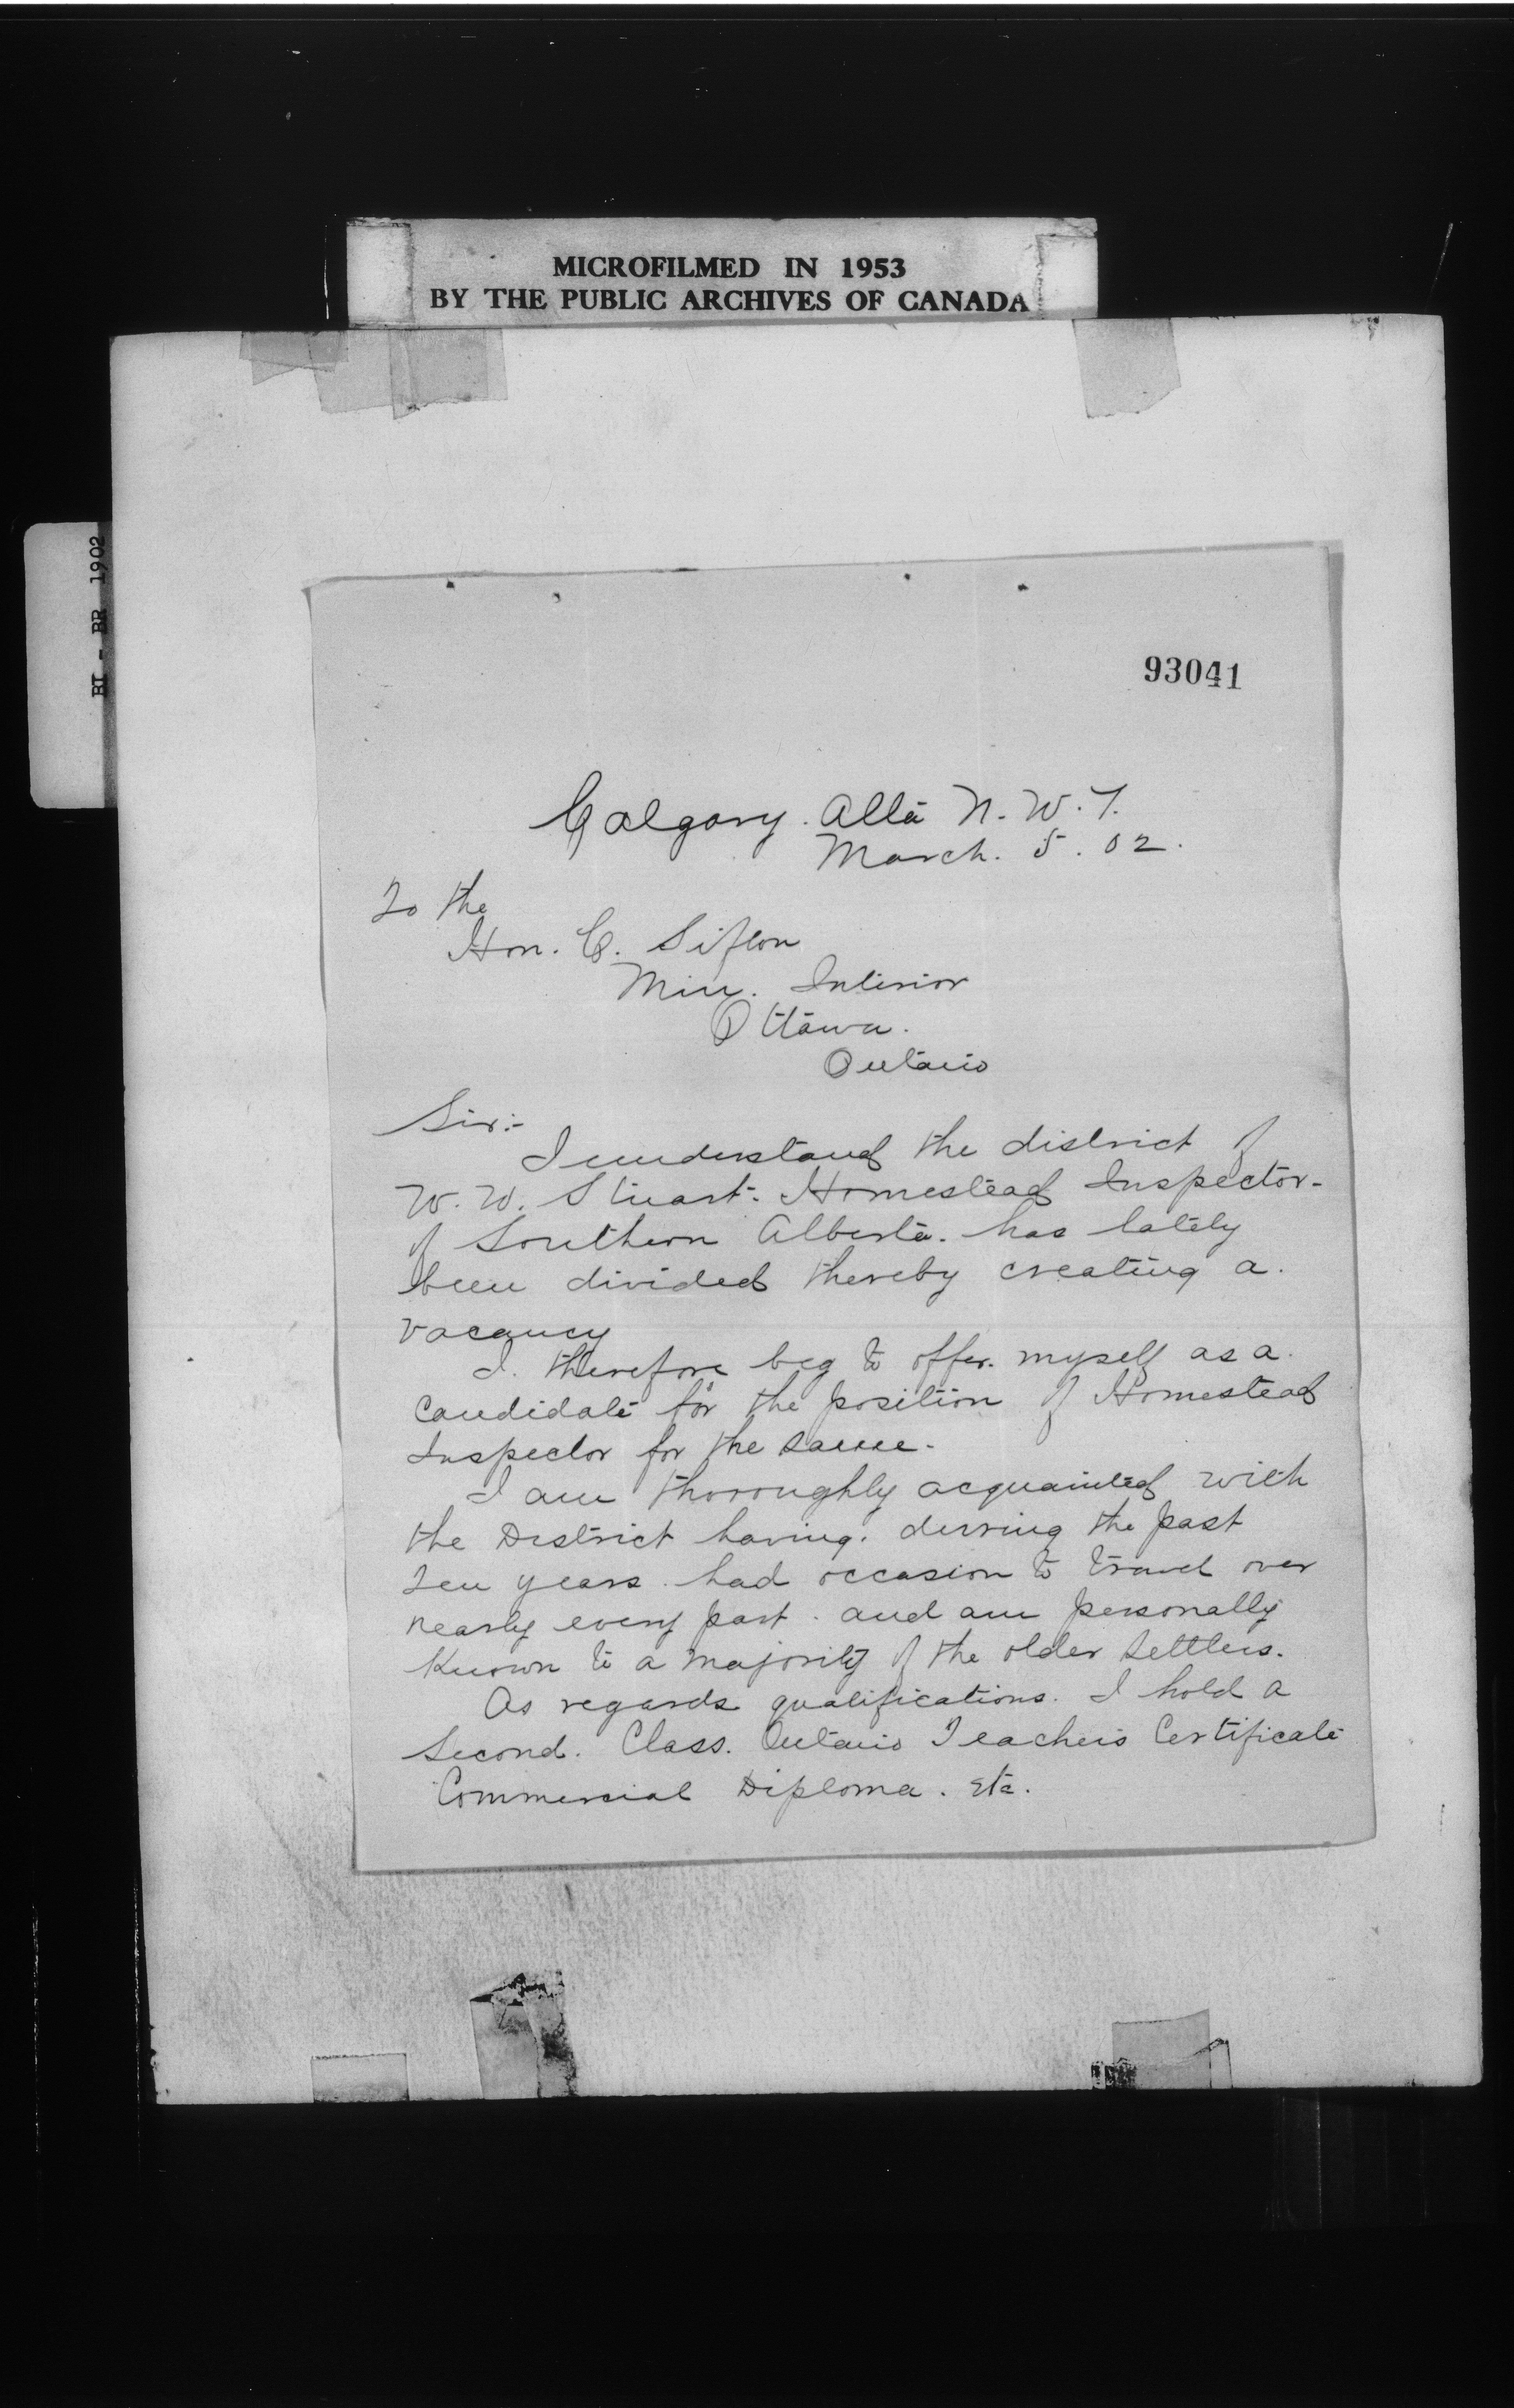 MICROFILMED IN 1953
BY THE PUBLIC ARCHIVES OF CANADA
BI - BR 1902
93041
Calgary. Alta N. W. T.
March. 5. 02.
To the
Hon. C. Sifton
Min. Interior
Ottawa.
Ontario
Sir:-
I understand the district of
W. W. Stuart. Homestead Inspector.
of Southern Alberta. has lately
been divided thereby creating a.
vacancy
I. therefore beg to offer. myself as a.
candidate for the position of Homestead
Inspector for the same.
I am thoroughly acquainted with
the District having. durring the past
ten years. had occasion to travel over
nearly every part. and am personally
known to a majority of the older settlers.
As regards qualifications. I hold a
Second. Class. Ontario Teachers Certificate
Commercial Diploma. etc.